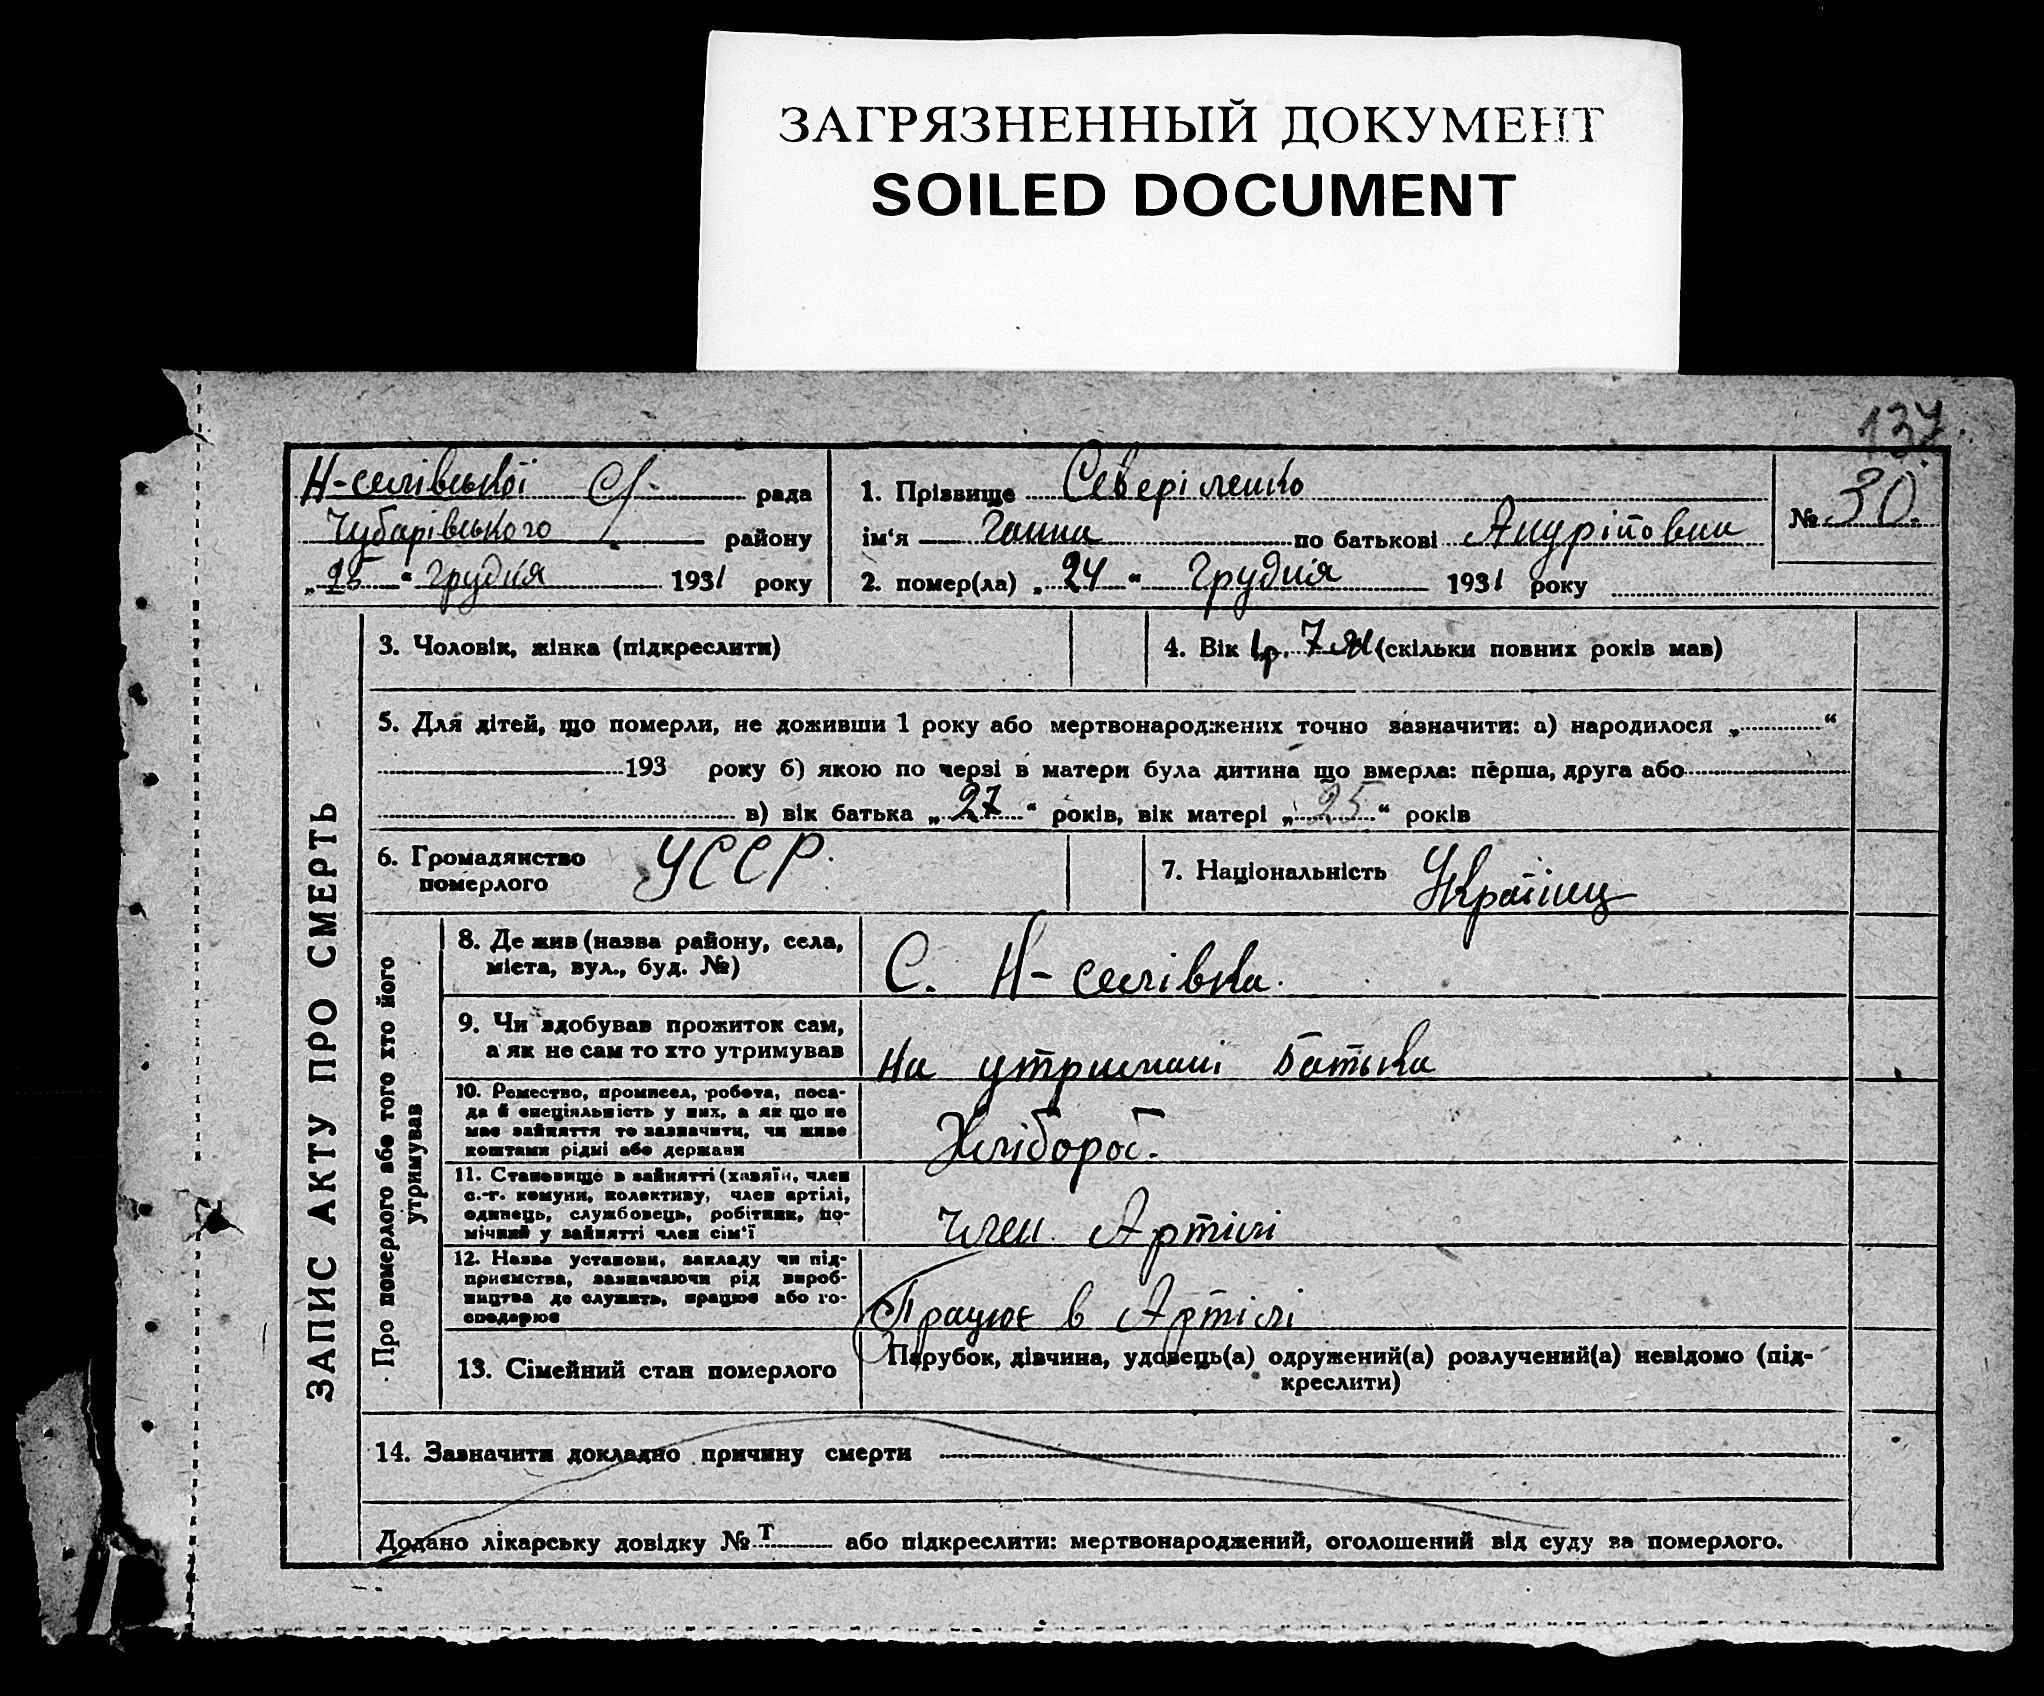 ЗАГРЯЗНЕННЫЙ ДОКУМЕНТ
SOILED DOCUMENT
137
Н-селівської С/ рада
Чубарівського району
„25“ грудня 1931 року
1. Прізвище
ім‘я Ганна по батькові
№ 30
2. помер(ла) „24“ Грудня 1931 року
ЗАПИС АКТУ ПРО СМЕРТЬ
3. Чоловік, жінка (підкреслити)
4. Вік 1р. 7 м (скільки повних років мав)
5. Для дітей, що померли, не доживши 1 року або мертвонароджених точно зазначити: а) народилося „ “
193 року б) якою по черзі в матери була дитина що вмерла: перша, друга або
в) вік батька „27“ років, вік матері „25“ років
6. Громадянство
померлого
УССР.
7. Національність Українц
Про померлого або того хто його
утримував
8. Де жив (назва району, села,
міста, вул., буд. №)
С. Н-селівка.
9. Чи здобував прожиток сам,
а як не сам то хто утримував
На утримані Батька
10. Ремество, промисел, робота, поса-
да й спеціяльність у них, а як що не
має зайняття то зазначити, чи живе
коштами рідні або держави
Хлібороб.
11. Становище в зайнятті (хазяїн, член
с.-г. комуни, колективу, член артілі,
одинець, службовець, робітник, по-
мічний у зайнятті член сім‘ї
Член Артілі
12. Назва установи, закладу чи під-
приємства, зазначаючи рід вироб-
ництва де служить, працює або го-
сподарює
Працює в Артілі
13. Сімейний стан померлого
Парубок, дівчина, удовець(а) одружений(а) розлучений(а) невідомо (під-
креслити)
14. Зазначити докладно причину смерти
Додано лікарську довідку № або підкреслити: мертвонароджений, оголошений від суду за померлого.